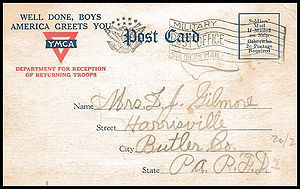 WELL DONE, BOYS
AMERICA GREETS YOU
YMCA
DEPARTMENT FOR RECEPTION
OF RETURNING TROOPS
Post Card
MILITARY
POST OFFICE
SOLDIERS MAIL
Soldiers'
Mail
If Mailed
on Ship
Otherwise
2c Postage
Required
Name Mrs. L. J. Gilmore
Street Harrisville
City Butler Co.
State Pa. R.F.D. 2